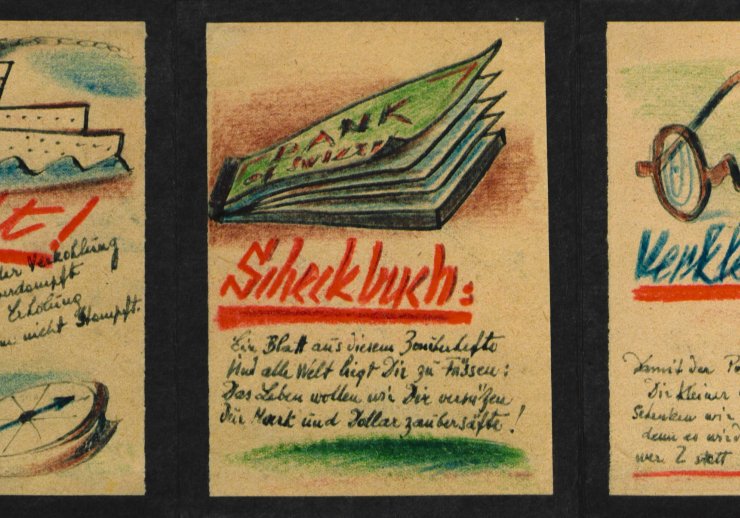 t!
der Verkohlung
verdampft
Erholung
nicht Stampft.
BANK
of SWIZZER
Scheckbuch:
Ein Blatt aus diesem Zauberhefte
Und alle Welt liegt Dir zu Füssen:
Das Leben wollen wir Dir versüßen
Für Mark und Dollar zaubersäfte!
Verkle
Damit der Po
Dir kleiner
Schenken wir
denn es wird
wer 2 statt